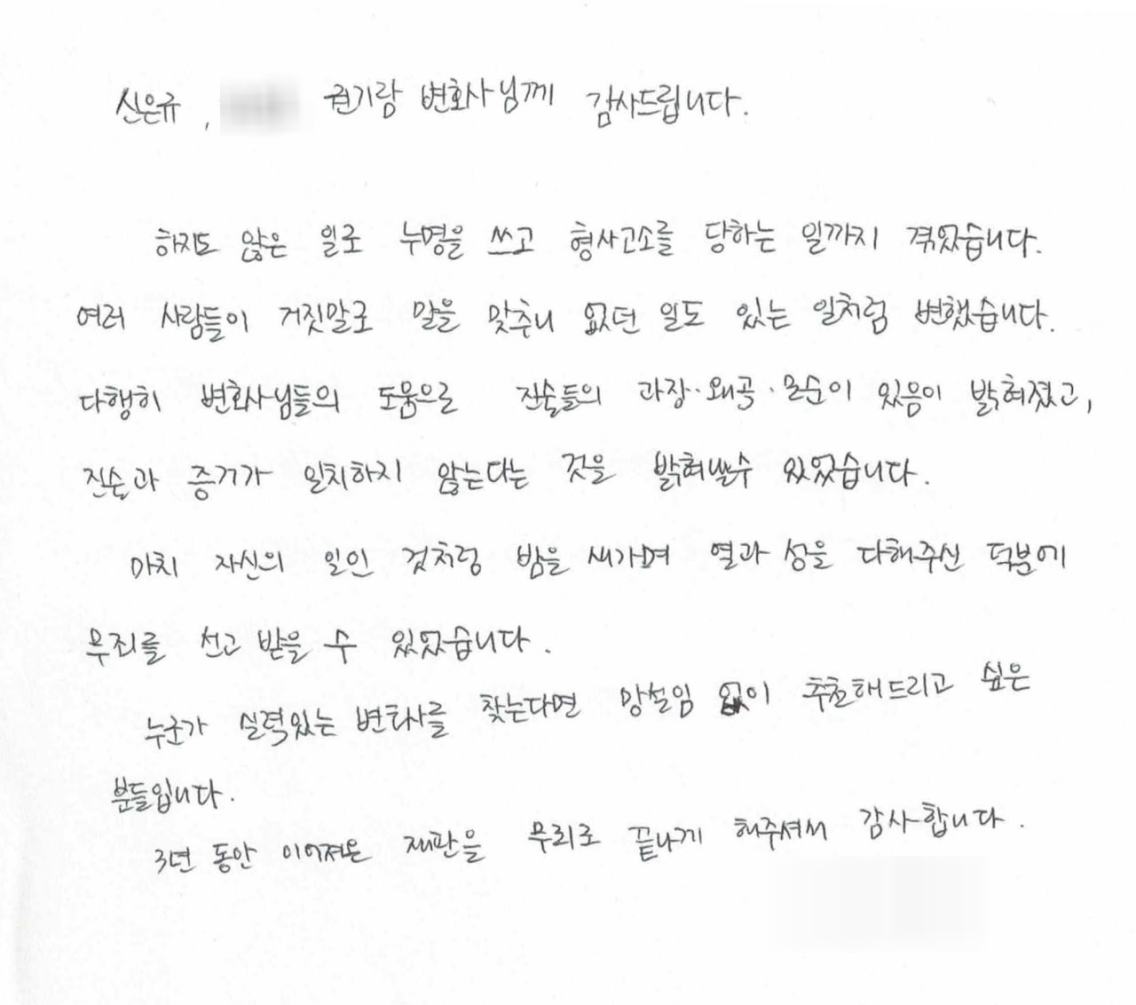 신은규, 권기랑 변호사님께 감사드립니다.
하지도 않은 일로 누명을 쓰고 형사고소를 당하는 일까지 겪었습니다.
여러 사람들이 거짓말로 말을 맞추니 없던 일도 있는 일처럼 변했습니다.
다행히 변호사님들의 도움으로 진술들의 과장·왜곡·모순이 있음이 밝혀졌고,
진술과 증거가 일치하지 않는다는 것을 밝혀낼수 있었습니다.
마치 자신의 일인 것처럼 밤을 새가며 열과 성을 다해주신 덕분에
무죄를 선고 받을 수 있었습니다.
누군가 실력있는 변호사를 찾는다면 망설임 없이 추천해드리고 싶은
분들입니다.
3년 동안 이어져온 재판을 무죄로 끝나게 해주셔서 감사합니다.